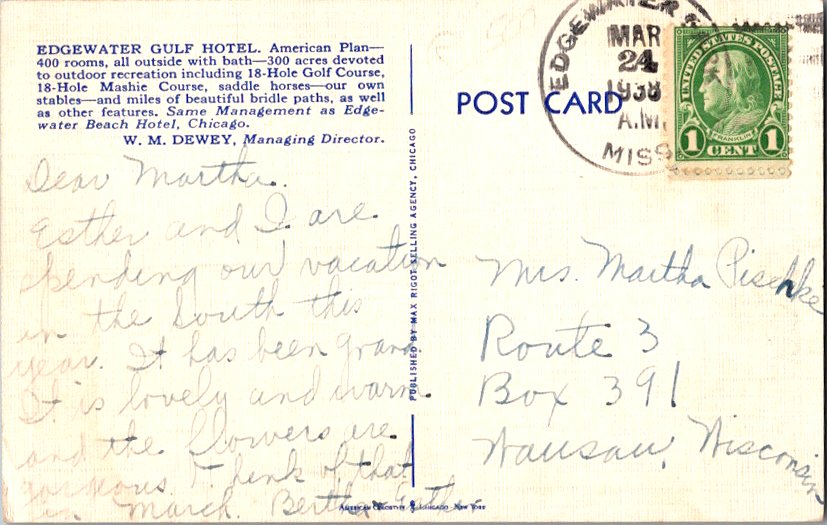 EDGEWATER GULF HOTEL. American Plan—
400 rooms, all outside with bath—300 acres devoted
to outdoor recreation including 18-Hole Golf Course,
18-Hole Mashie Course, saddle horses—our own
stables—and miles of beautiful bridle paths, as well
as other features. Same Management as Edge-
water Beach Hotel, Chicago.
W. M. DEWEY, Managing Director.
Dear Martha.
Esther and I are
spending our vacation
in the South this
year. It has been grand.
It is lovely and warm
and the flowers are
gorgeous. Think of that
in March. Bertha
PUBLISHED BY MAX RIGOT SELLING AGENCY, CHICAGO
POST CARD
EDGEWATER
MAR
24
1938
A.M.
MISS
UNITED STATES POSTAGE
FRANKLIN
1 CENT 1
Mrs. Martha Pischke
Route 3
Box 391
Wausau, Wisconsin